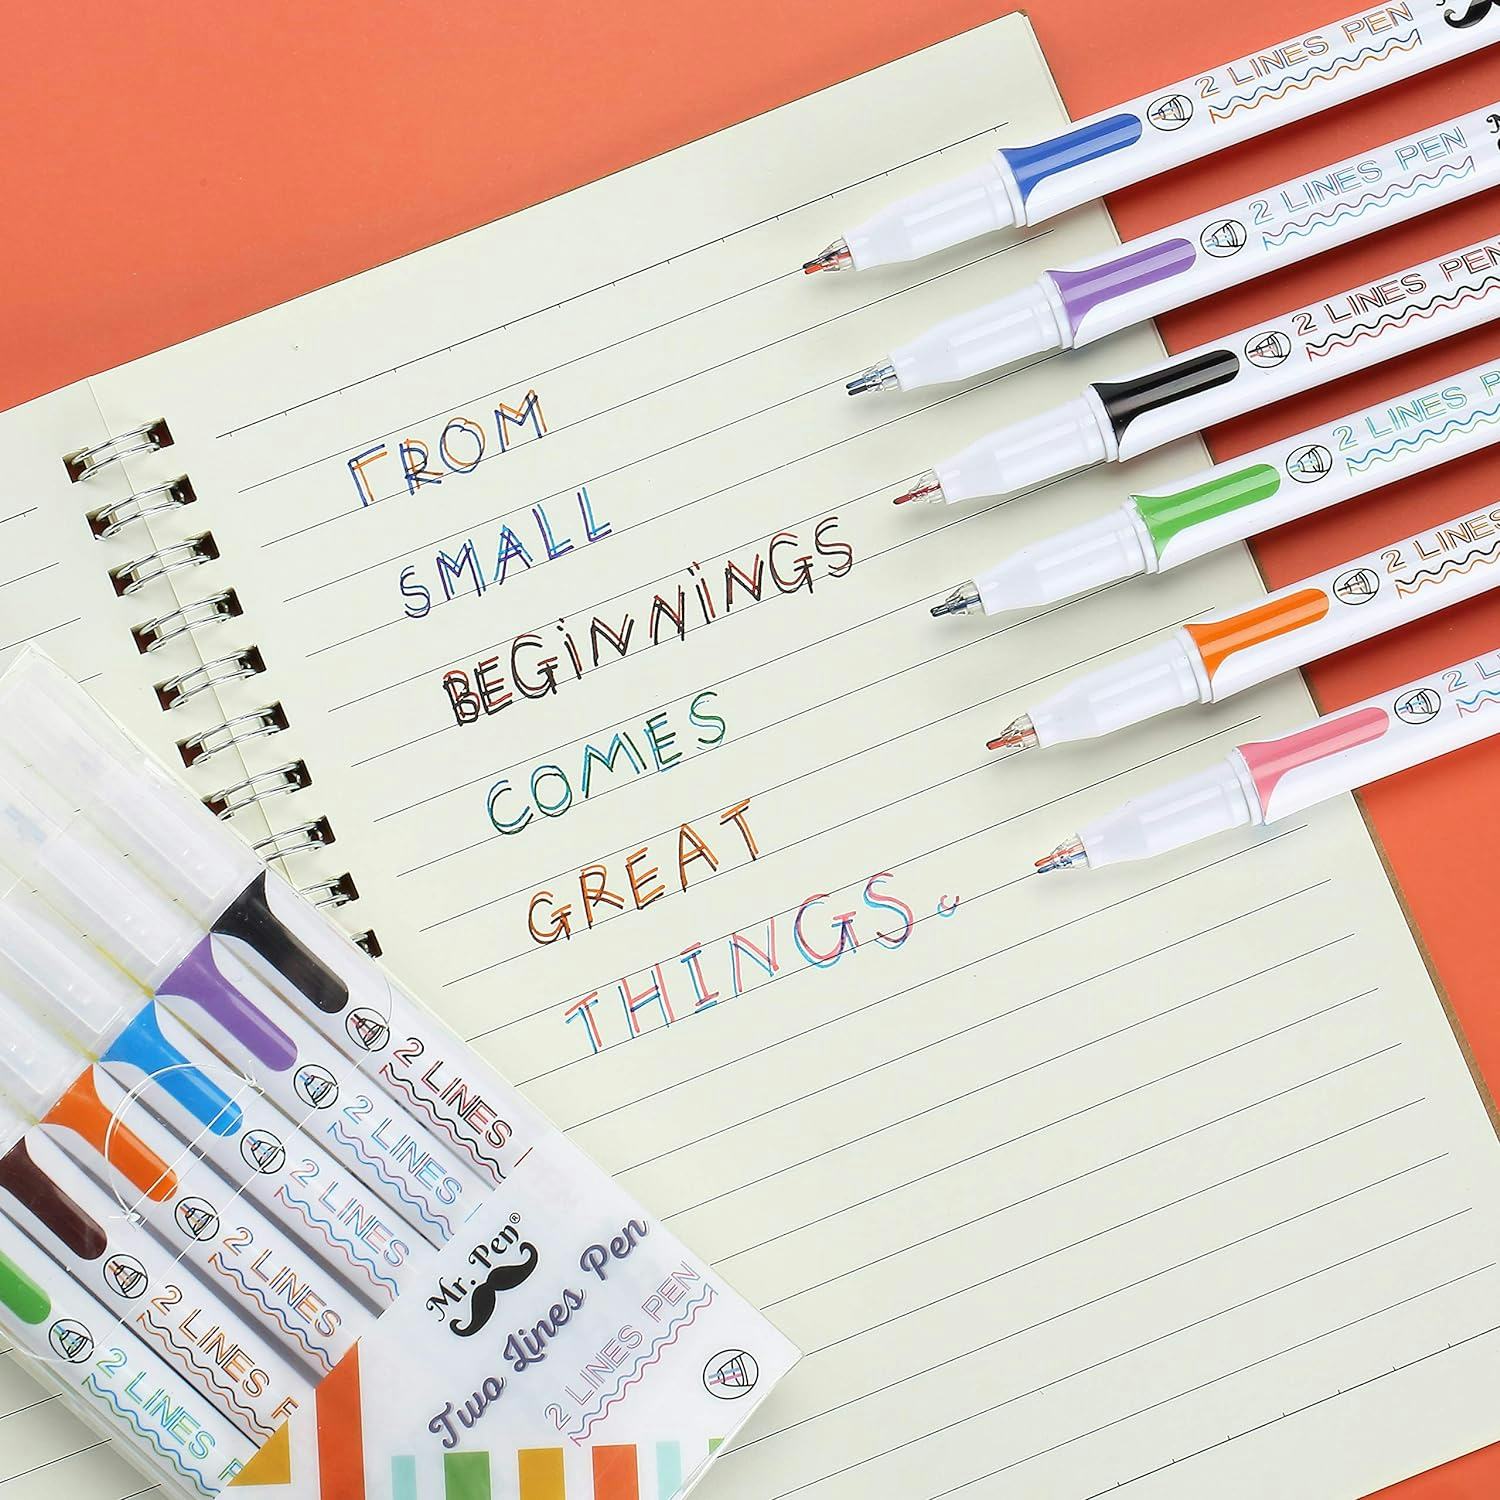 2 LINES PEN
2 LINES PEN
2 LINES PEN
2 LINES P
2 LINES
2 L
FROM
SMALL
BEGiNNiNGS
COMES
GREAT
THINGS.
2 LINES
2 LINES
2 LINES
2 LINES
2 LINES P
2 LINES P
Mr. Pen®
Two Lines Pen
2 LINES PEN